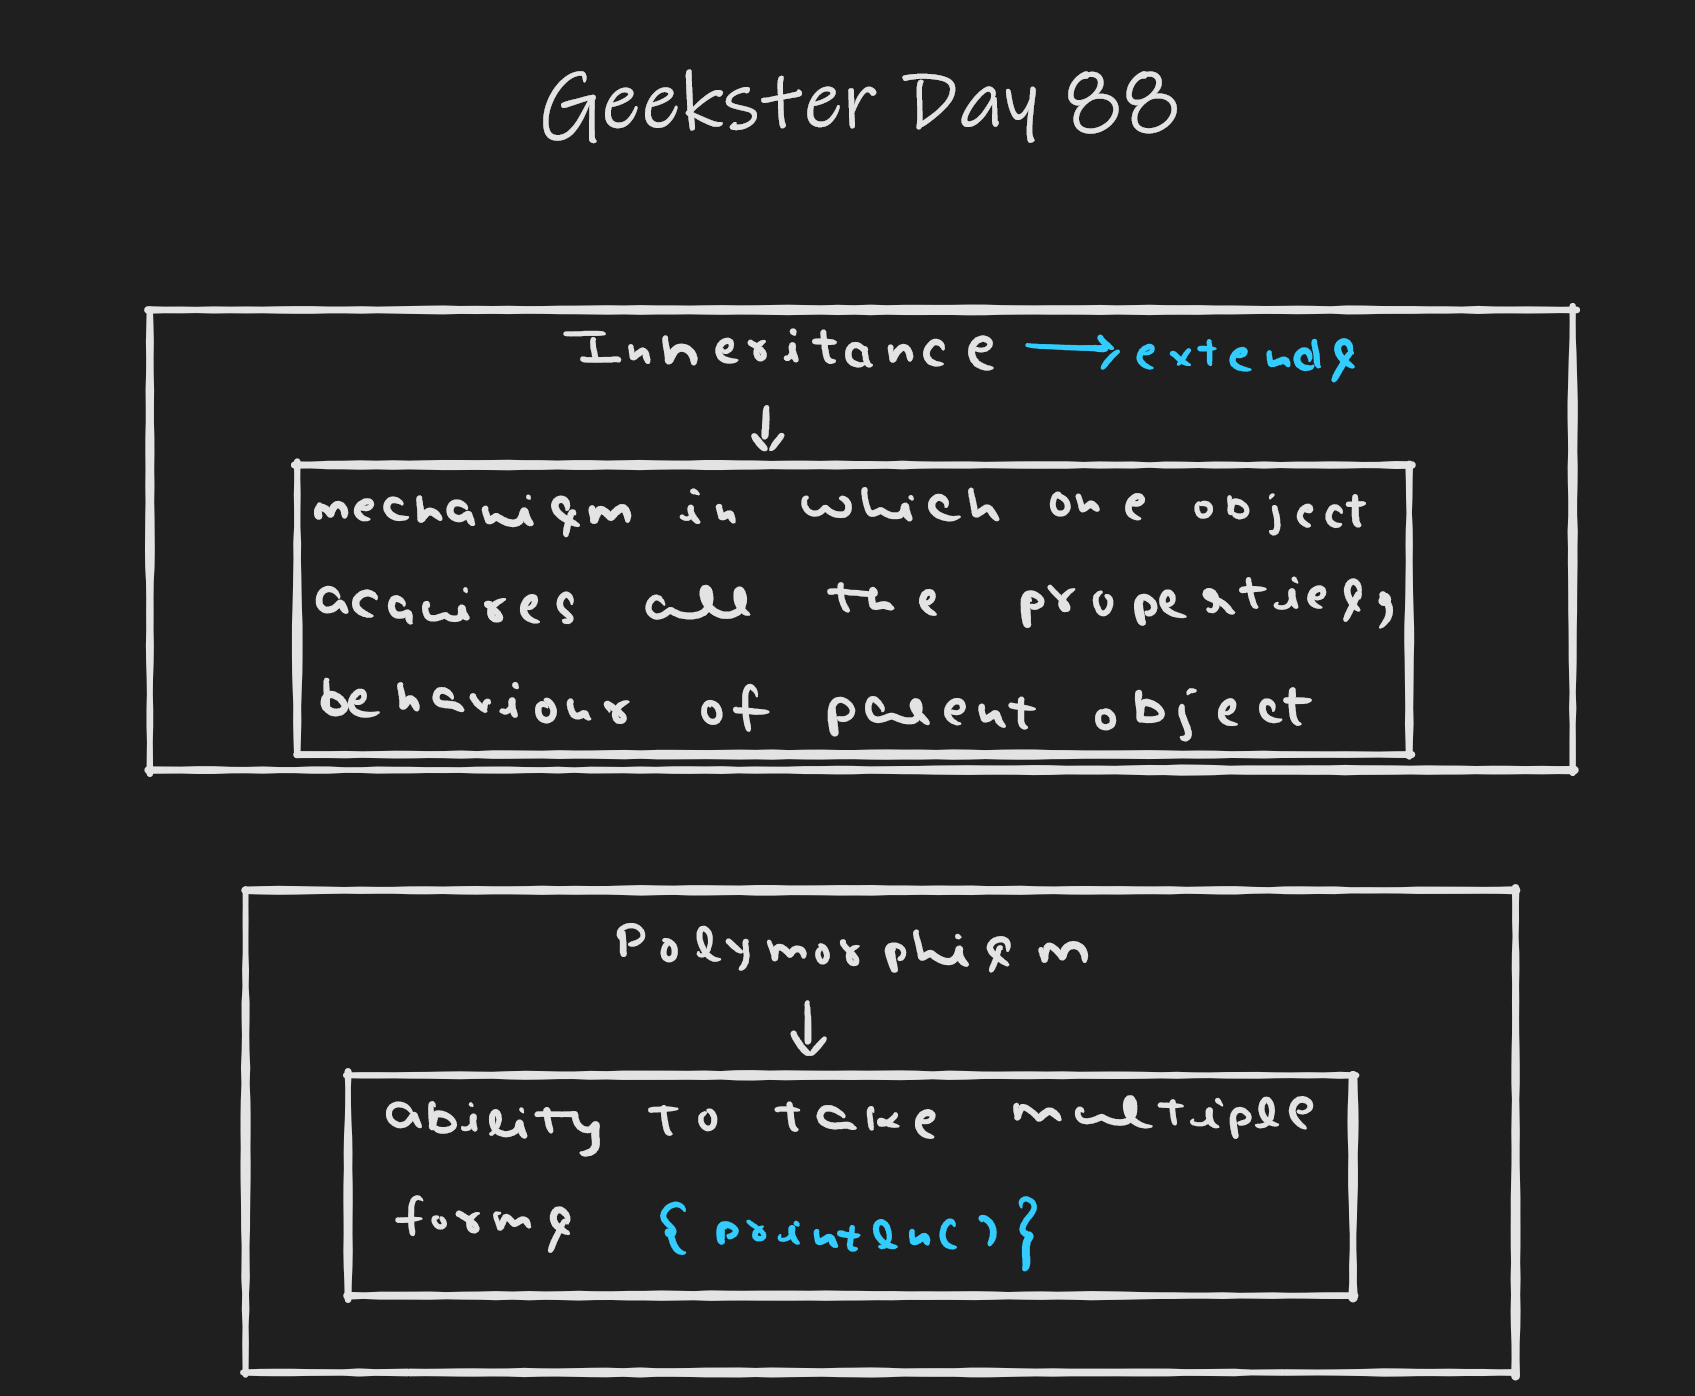 Geekster Day 88
Inheritance → extends
↓
mechanism in which one object
acquires all the properties,
behaviour of parent object
Polymorphism
↓
ability to take multiple
forms {println()}